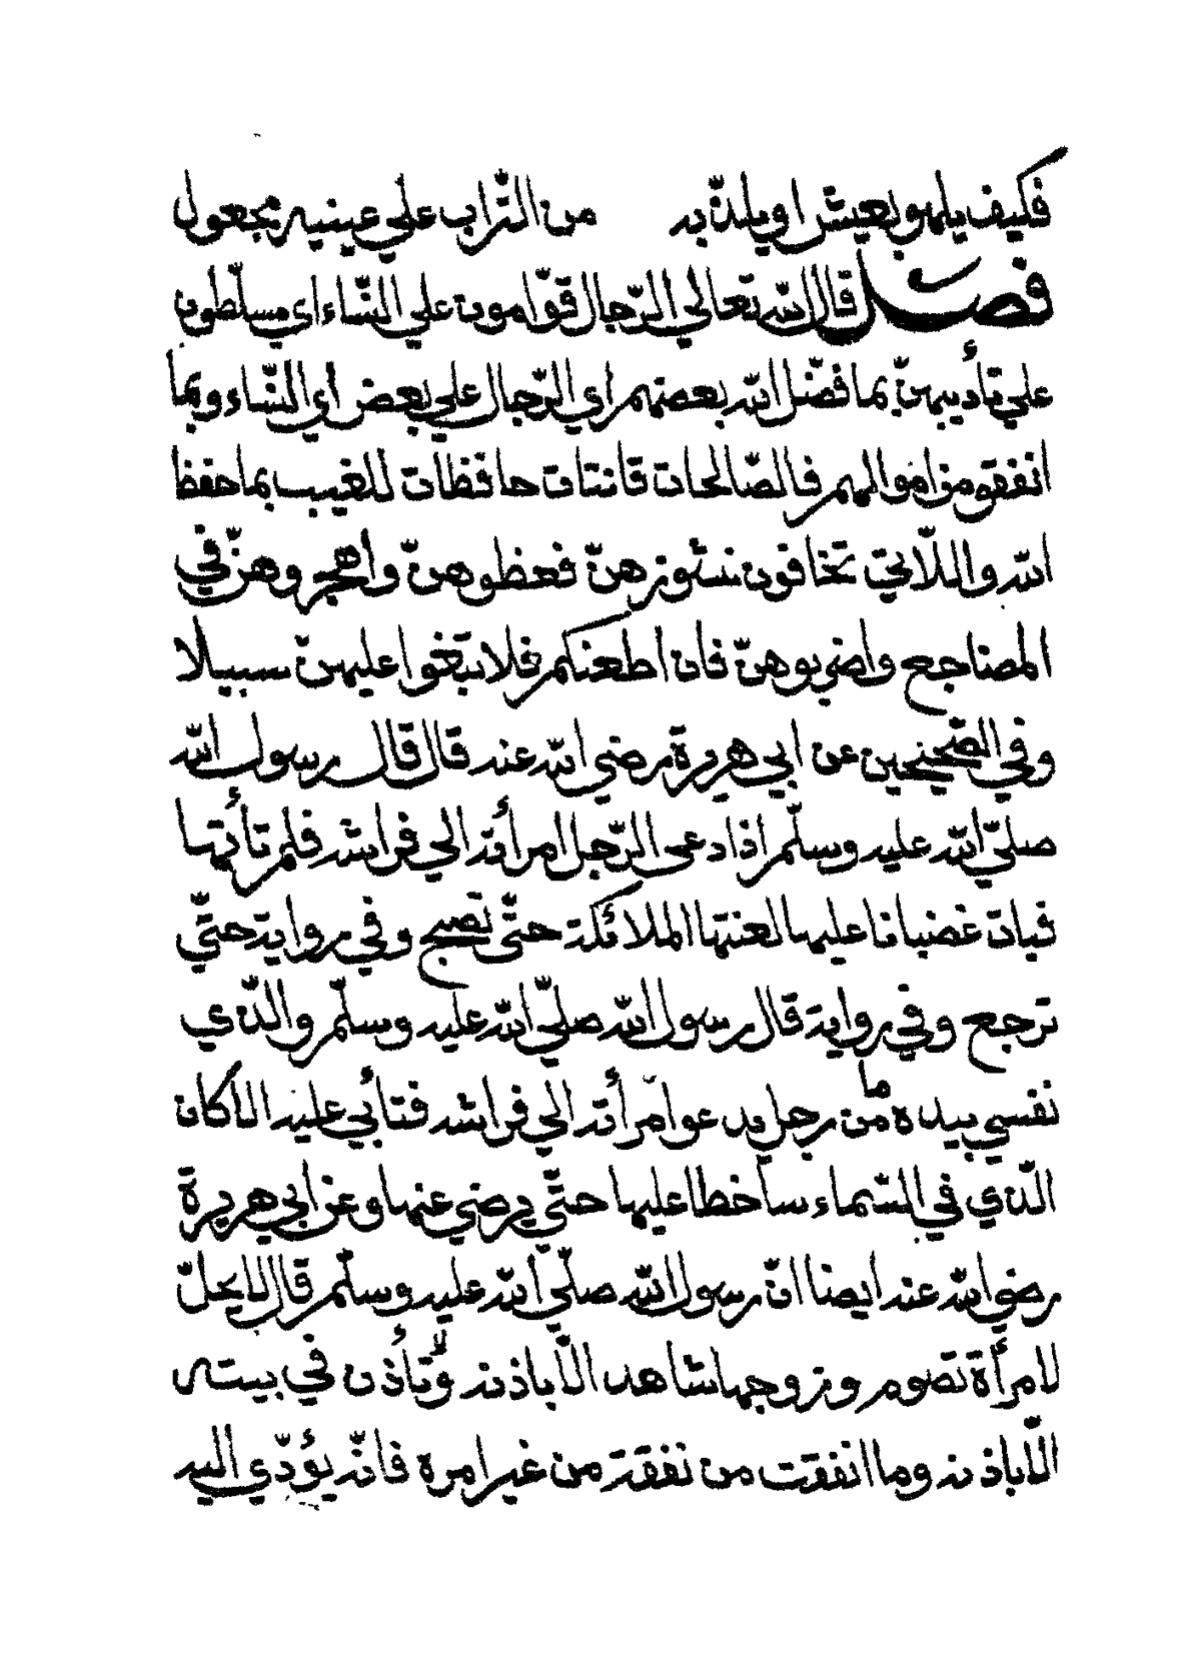 فكيف يلهو بعيش او يلذّ به من التّراب علي عينيه مجعول
فصل قال الله تعالي الرّجال قوّامون علي النّساء اي مسلّطون
علي تأديبهنّ بما فضّل الله بعضهم اي الرّجال علي بعض اي النّساء وبما
انفقو من اموالهم فالصّالحات قانتات حافظات للغيب بما حفظ
الله واللّاتي تخافون نشوزهنّ فعظوهنّ واهجروهنّ في
المضاجع واضربوهنّ فان اطعنكم فلا تبغوا عليهنّ سبيلا
وفي الصّحيحين عن ابي هريرة رضي الله عنه قال قال رسول الله
صلّي الله عليه وسلّم اذا دعى الرّجل امرأته الي فراشه فلم تأتها
فبات غضبانا عليها لعنتها الملائكة حتّى تصبح وفي رواية حتّي
ترجع وفي رواية قال رسول الله صلّي الله عليه وسلّم والّذي
نفسي بيده ما من رجل يدعوا مرأته الي فراشه فتأبي عليه الا كان
الّذي في السّماء ساخطا عليها حتّي يرضي عنها وعن ابي هريرة
رضي الله عنه ايضا انّ رسول الله صلّي الله عليه وسلّم قال لا يحلّ
لامرأة تصوم وزوجها شاهد الّا باذنه ولا تأذن في بيته
الّا باذنه وما انفقت من نفقة من غير امره فانّه يؤدّي اليه